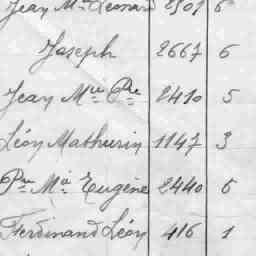 Jean Mie Léonard 2501 6
Joseph 2667 6
Jean Mie Pre 2410 5
Léon Mathurin 1147 3
Pre Mie Eugène 2440 6
Ferdinand Léon 416 1